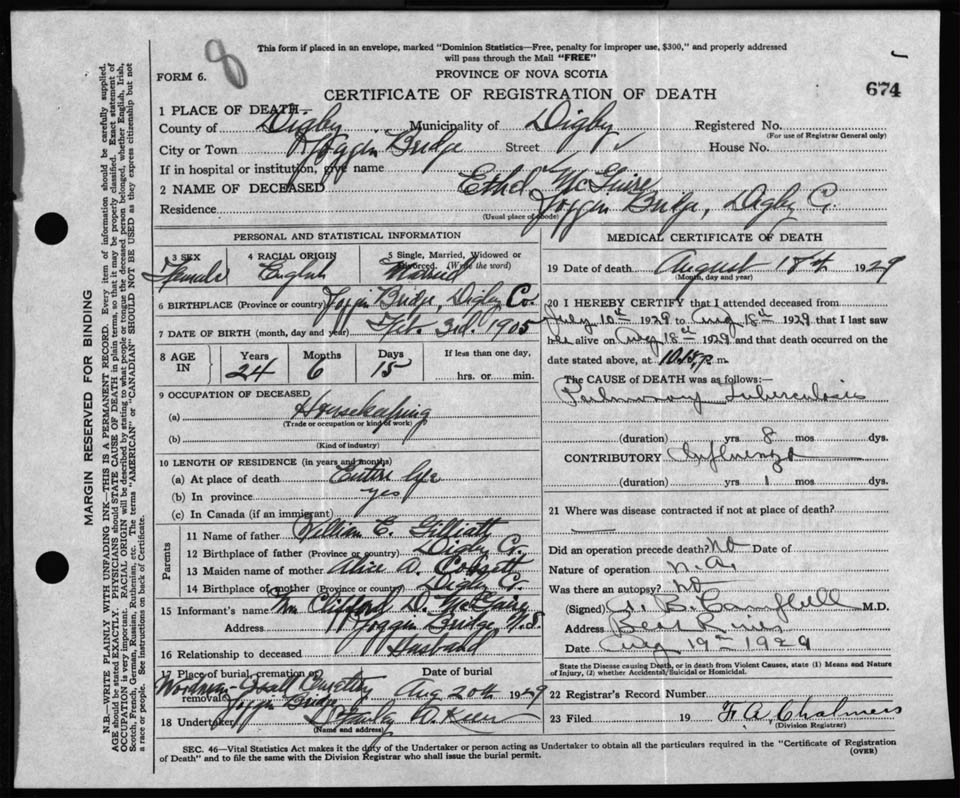 8
This form if placed in an envelope, marked "Dominion Statistics—Free, penalty for improper use, $300," and properly addressed
will pass through the Mail "FREE"
FORM 6.
PROVINCE OF NOVA SCOTIA
CERTIFICATE OF REGISTRATION OF DEATH
674
1 PLACE OF DEATH—
County of Digby Municipality of Digby Registered No.
(For use of Registrar General only)
City or Town Joggin Bridge Street House No.
If in hospital or institution, give name
2 NAME OF DECEASED Ethel McGuire
Residence Joggin Bridge, Digby Co.
(Usual place of abode)
PERSONAL AND STATISTICAL INFORMATION
3 SEX 4 RACIAL ORIGIN 5 Single, Married, Widowed or Divorced. (Write the word)
Female English Married
6 BIRTHPLACE (Province or country) Joggin Bridge, Digby Co.
7 DATE OF BIRTH (month, day and year) Feb. 3rd. 1905
8 AGE IN Years Months Days If less than one day,
24 6 15 hrs. or min.
9 OCCUPATION OF DECEASED
(a) Housekeeping
(Trade or occupation or kind of work)
(b)
(Kind of industry)
10 LENGTH OF RESIDENCE (in years and months)
(a) At place of death Entire life
(b) In province yes
(c) In Canada (if an immigrant)
Parents
11 Name of father William C.
12 Birthplace of father (Province or country) Digby Co.
13 Maiden name of mother Alice A. Cossett
14 Birthplace of mother (Province or country) Digby Co.
15 Informant's name Clifford D. McGuire
Address Joggin Bridge, N.S.
16 Relationship to deceased Husband
17 Place of burial, cremation or removal Date of burial
Cemetery Joggin Bridge Aug 20th 1929
18 Undertaker
(Name and address)
MEDICAL CERTIFICATE OF DEATH
19 Date of death August 18th 1929
(Month, day and year)
20 I HEREBY CERTIFY that I attended deceased from
July 10th 1929 to Aug 18th 1929 that I last saw
her alive on Aug 18th 1929 and that death occurred on the
date stated above, at 10.15 p m.
The CAUSE OF DEATH was as follows:—
Pulmonary Tuberculosis
(duration) yrs. 8 mos dys.
CONTRIBUTORY Influenza
(duration) yrs. 1 mos. dys.
21 Where was disease contracted if not at place of death?
Did an operation precede death? No Date of
Nature of operation N.A.
Was there an autopsy? No
(Signed) A. B. Campbell M.D.
Address Bear River
Date Aug 19th 1929
State the Disease causing Death, or in death from Violent Causes, state (1) Means and Nature
of Injury, (2) whether Accidental, Suicidal or Homicidal.
22 Registrar's Record Number
23 Filed 19 F. A. Chalmers
(Division Registrar)
SEC. 46—Vital Statistics Act makes it the duty of the Undertaker or person acting as Undertaker to obtain all the particulars required in the "Certificate of Registration
of Death" and to file the same with the Division Registrar who shall issue the burial permit.
(OVER)
MARGIN RESERVED FOR BINDING
N.B.—WRITE PLAINLY WITH UNFADING INK—THIS IS A PERMANENT RECORD. Every item of information should be carefully supplied.
AGE should be stated EXACTLY. PHYSICIANS should STATE CAUSE OF DEATH in plain terms, so that it may be properly classified. Exact statement of
OCCUPATION is very important. RACIAL ORIGIN will be described by stating to what people or tongue the deceased person belonged, whether English, Irish,
Scotch, French, German, Russian, Ruthenian, etc. The terms "AMERICAN" or "CANADIAN" SHOULD NOT BE USED as they express citizenship but not
a race or people. See instructions on back of Certificate.